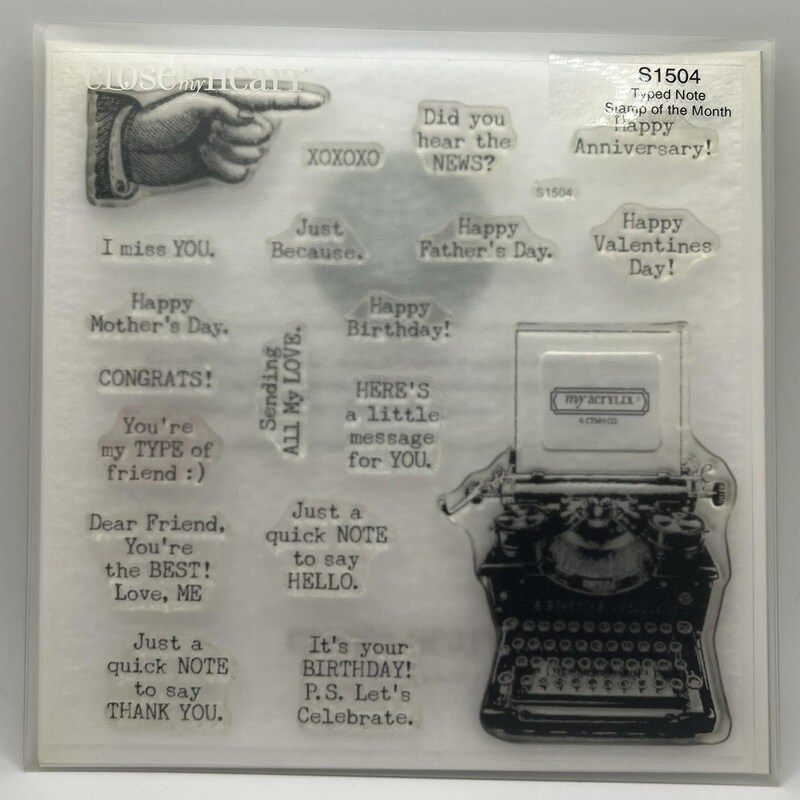 close my Heart
S1504
Typed Note
Stamp of the Month
XOXOXO
Did you
hear the
NEWS?
Happy
Anniversary!
S1504
I miss YOU.
Just
Because.
Happy
Father's Day.
Happy
Valentines
Day!
Happy
Mother's Day.
Happy
Birthday!
CONGRATS!
Sending
All My LOVE.
HERE'S
a little
message
for YOU.
my ACRYLIX
You're
my TYPE of
friend :)
Dear Friend,
You're
the BEST!
Love, ME
Just a
quick NOTE
to say
HELLO.
Just a
quick NOTE
to say
THANK YOU.
It's your
BIRTHDAY!
P.S. Let's
Celebrate.